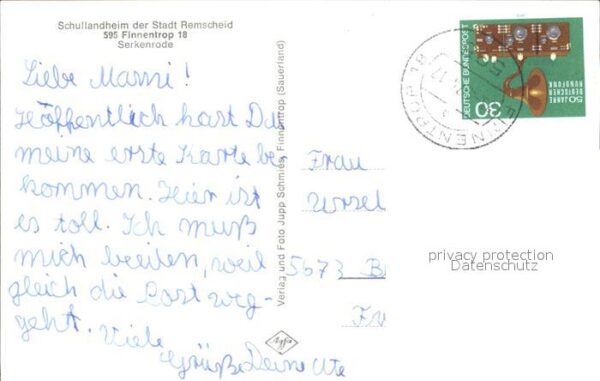 Schullandheim der Stadt Remscheid
595 Finnentrop 18
Serkenrode
Liebe Mammi!
Höffentlich hast Du
meine erste Karte be-
kommen. Hier ist
es toll. Ich muß
mich beeilen, weil
gleich die Post weg-
geht. Viele
Grüße Deine Ute
Verlag und Foto Jupp Schmies, Finnentrop (Sauerland)
Agfa
Frau
Ursel
5673 B
DEUTSCHE BUNDESPOST
50 JAHRE
DEUTSCHER
RUNDFUNK
30
FINNENTROP 18
privacy protection
Datenschutz